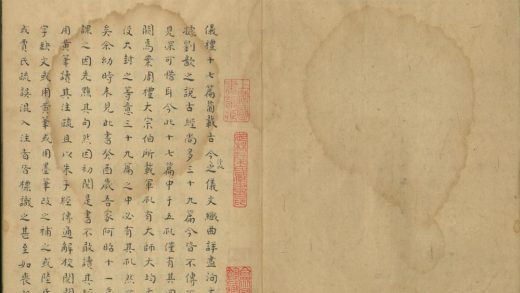 儀禮十七篇備載古今之儀文纖曲詳盡洵
據劉歆之說古經尚多三十九篇今皆不傳
見深可惜耳今此十七篇中于五礼僅有其
闕焉葉周禮大宗伯所載軍礼有大師大均大
役大封之等意三十九篇之中必有其礼然
矣余幼時未見此書癸酉歲吾家阿晗十一
課之因先點其句然因初閱是書不敢讀其
用黃筆讀其注疏且以朱子經傳通解校閱
字缺文或用黃筆或用墨筆改之補之或陸
或賈氏疏誤混入注者皆標識之甚至如喪